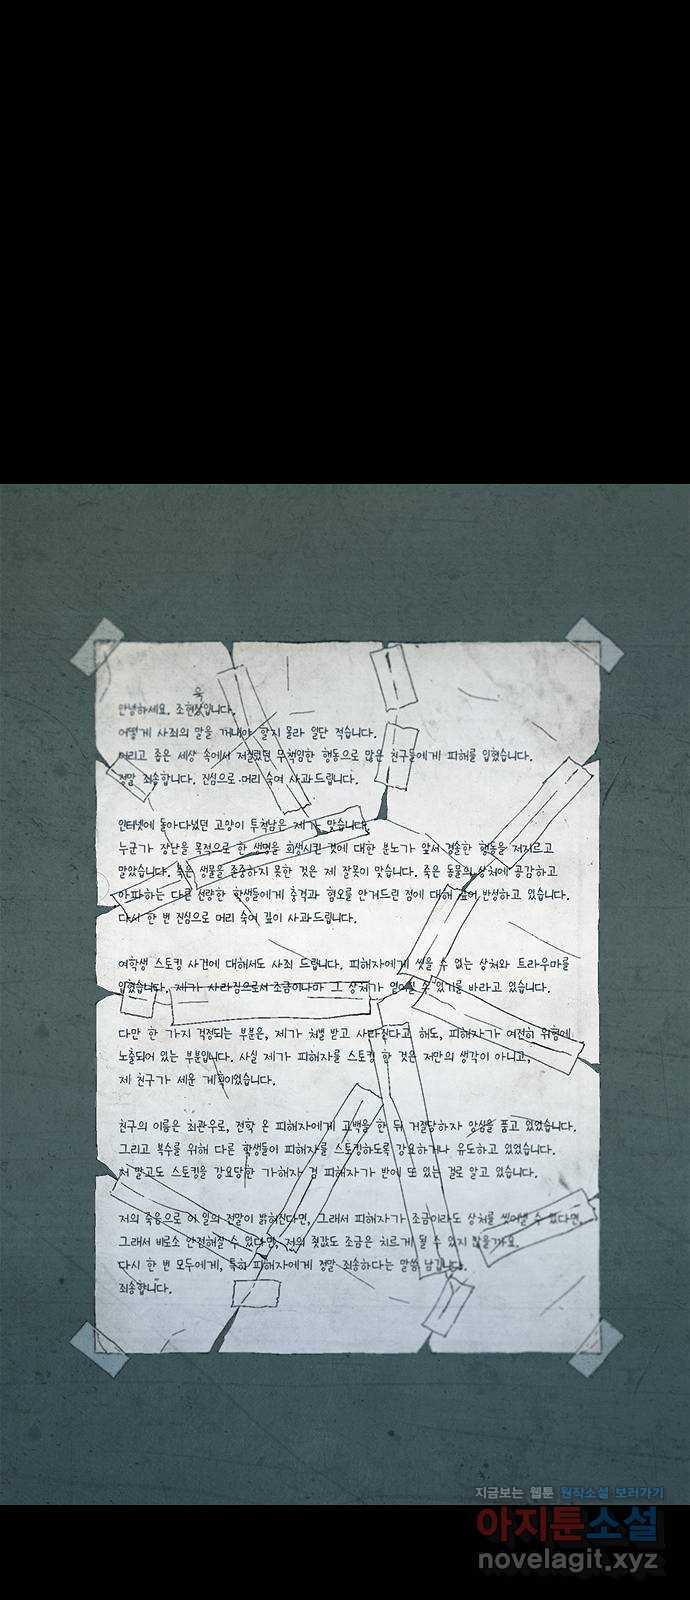 욱
안녕하세요. 조현상입니다.
어떻게 사죄의 말을 꺼내야 할지 몰라 일단 적습니다.
어리고 좁은 세상 속에서 저질렀던 무책임한 행동으로 많은 친구들에게 피해를 입혔습니다.
정말 죄송합니다. 진심으로 머리 숙여 사과드립니다.
인터넷에 돌아다녔던 고양이 투척남은 제가 맞습니다.
누군가 장난을 목적으로 한 생명을 희생시킨 것에 대한 분노가 앞서 경솔한 행동을 저지르고
말았습니다. 죽은 생물을 존중하지 못한 것은 제 잘못이 맞습니다. 죽은 동물의 상처에 공감하고
아파하는 다른 선량한 학생들에게 충격과 혐오를 안겨드린 점에 대해 깊이 반성하고 있습니다.
다시 한 번 진심으로 머리 숙여 깊이 사과드립니다.
여학생 스토킹 사건에 대해서도 사죄 드립니다. 피해자에게 씻을 수 없는 상처와 트라우마를
입혔습니다. 제가 사라짐으로서 조금이나마 그 상처가 옅어질 수 있기를 바라고 있습니다.
다만 한 가지 걱정되는 부분은, 제가 처벌 받고 사라진다고 해도, 피해자가 여전히 위험에
노출되어 있는 부분입니다. 사실 제가 피해자를 스토킹 한 것은 저만의 생각이 아니고,
제 친구가 세운 계획이었습니다.
친구의 이름은 최관우로, 전학 온 피해자에게 고백을 한 뒤 거절당하자 앙심을 품고 있었습니다.
그리고 복수를 위해 다른 학생들이 피해자를 스토킹하도록 강요하거나 유도하고 있었습니다.
저 말고도 스토킹을 강요당한 가해자 겸 피해자가 반에 또 있는 걸로 알고 있습니다.
저의 죽음으로 이 일의 전말이 밝혀진다면, 그래서 피해자가 조금이라도 상처를 씻어낼 수 있다면,
그래서 비로소 안정해질 수 있다면, 저의 죗값도 조금은 치르게 될 수 있지 않을까요.
다시 한 번 모두에게, 특히 피해자에게 정말 죄송하다는 말씀 남깁니다.
죄송합니다.
지금보는 웹툰 원작소설 보러가기
아지툰소설
novelagit.xyz